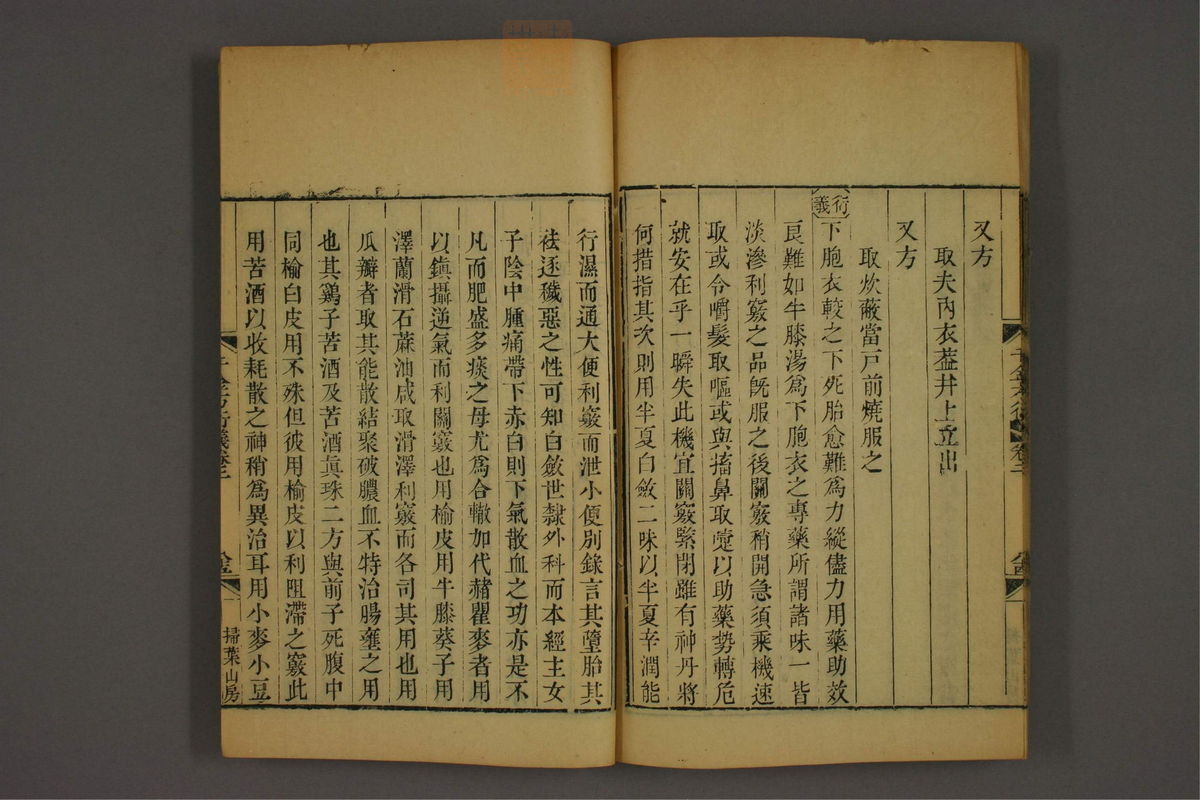 又方
取夫內衣葢井上立出
又方
取炊蔽當戸前燒服之
衍義
下胞衣較之下死胎愈難爲力縱儘力用藥助效
艮難如牛膝湯爲下胞衣之專藥所謂諸味一皆
淡滲利竅之品旣服之後關竅稍開急須乘機速
取或令嚼髮取嘔或與搐鼻取嚏以助藥勢轉危
就安在乎一瞬失此機宜關竅緊閉雖有神丹將
何措指其次則用半夏白斂二味以半夏辛潤能
行濕而通大便利竅而泄小便別錄言其墮胎其
祛逐穢惡之性可知白斂世隸外科而本經主女
子陰中腫痛帶下赤白則下氣散血之功亦是不
凡而肥盛多痰之母尤爲合轍加代赭瞿麥者用
以鎭攝逆氣而利關竅也用榆皮用牛膝葵子用
澤蘭滑石蔴油咸取滑澤利竅而各司其用也用
瓜瓣者取其能散結聚破膿血不特治腸癰之用
也其鷄子苦酒及苦酒眞珠二方與前子死腹中
同榆白皮用不殊但彼用榆皮以利阻滯之竅此
用苦酒以收耗散之神稍爲異治耳用小麥小豆
千金方衍義卷二
掃葉山房